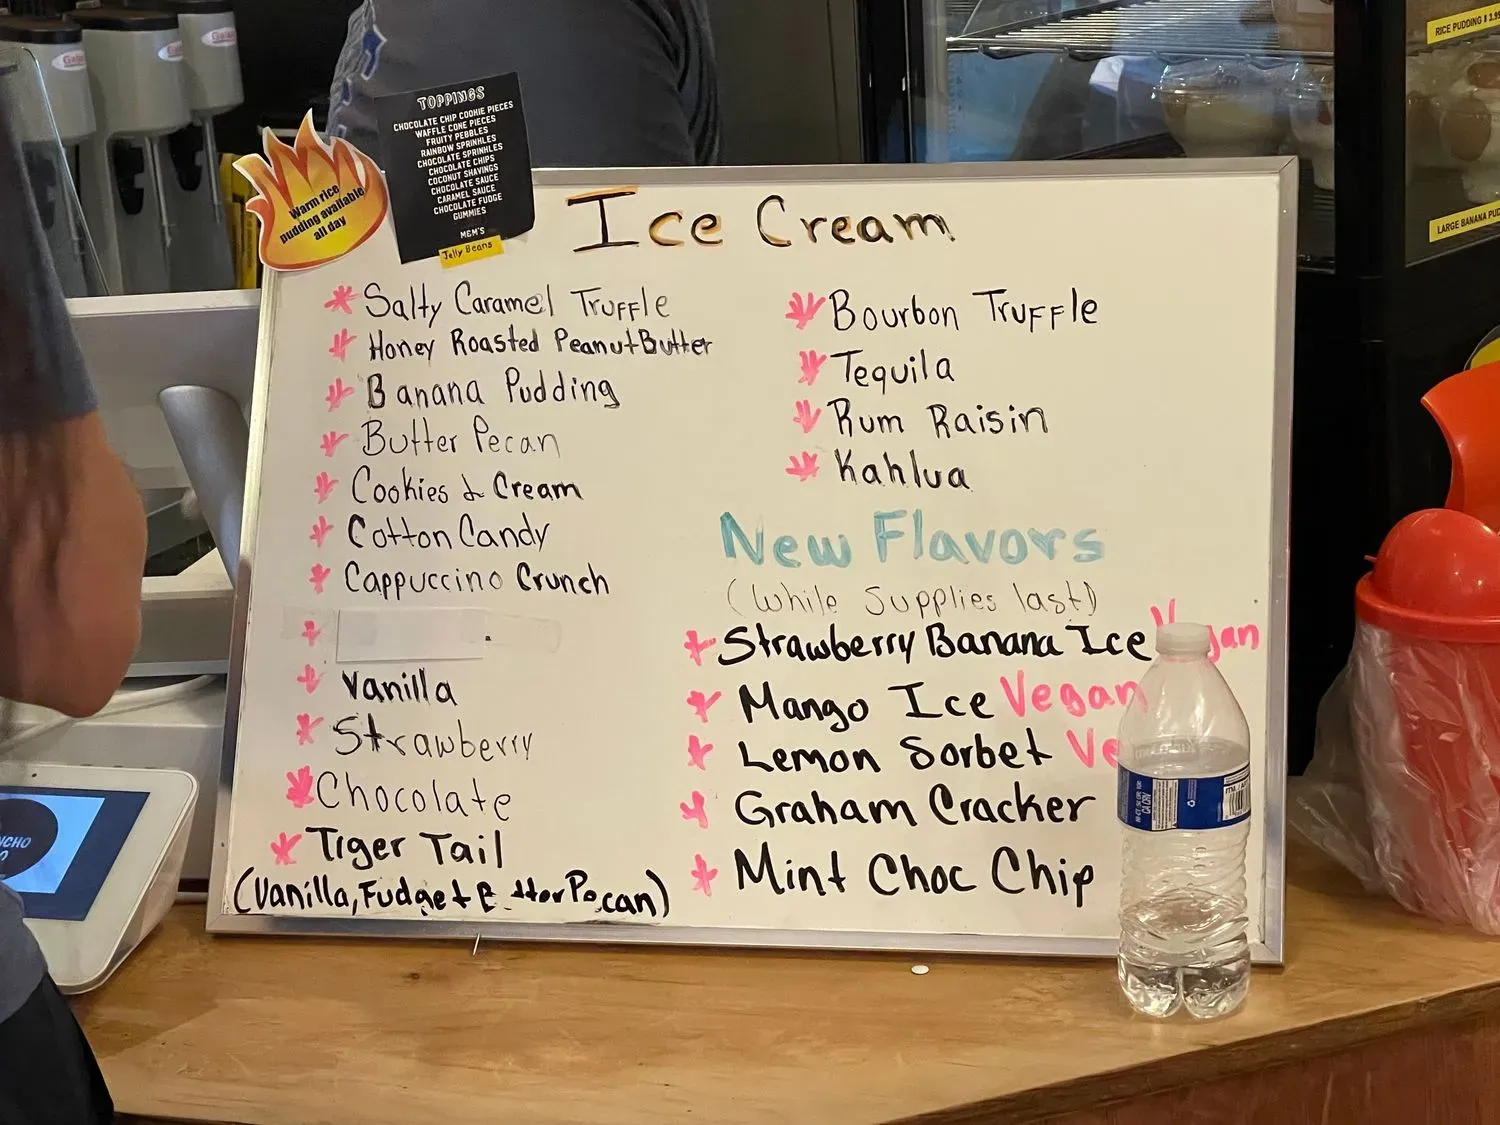 TOPPINGS
CHOCOLATE CHIP COOKIE PIECES
WAFFLE CONE PIECES
FRUITY PEBBLES
RAINBOW SPRINKLES
CHOCOLATE SPRINKLES
CHOCOLATE CHIPS
COCONUT SHAVINGS
CHOCOLATE SAUCE
CARAMEL SAUCE
CHOCOLATE FUDGE
GUMMIES
M&M'S
Jelly Beans
Warm rice
pudding available
all day
RICE PUDDING $ 3.95
LARGE BANANA PUD
Ice Cream
Salty Caramel Truffle
Honey Roasted Peanut Butter
Banana Pudding
Butter Pecan
Cookies & Cream
Cotton Candy
Cappuccino Crunch
Vanilla
Strawberry
Chocolate
Tiger Tail
(Vanilla, Fudge + B tter Pecan)
Bourbon Truffle
Tequila
Rum Raisin
Kahlua
New Flavors
(While Supplies last)
Strawberry Banana Ice Vegan
Mango Ice Vegan
Lemon Sorbet Ve
Graham Cracker
Mint Choc Chip